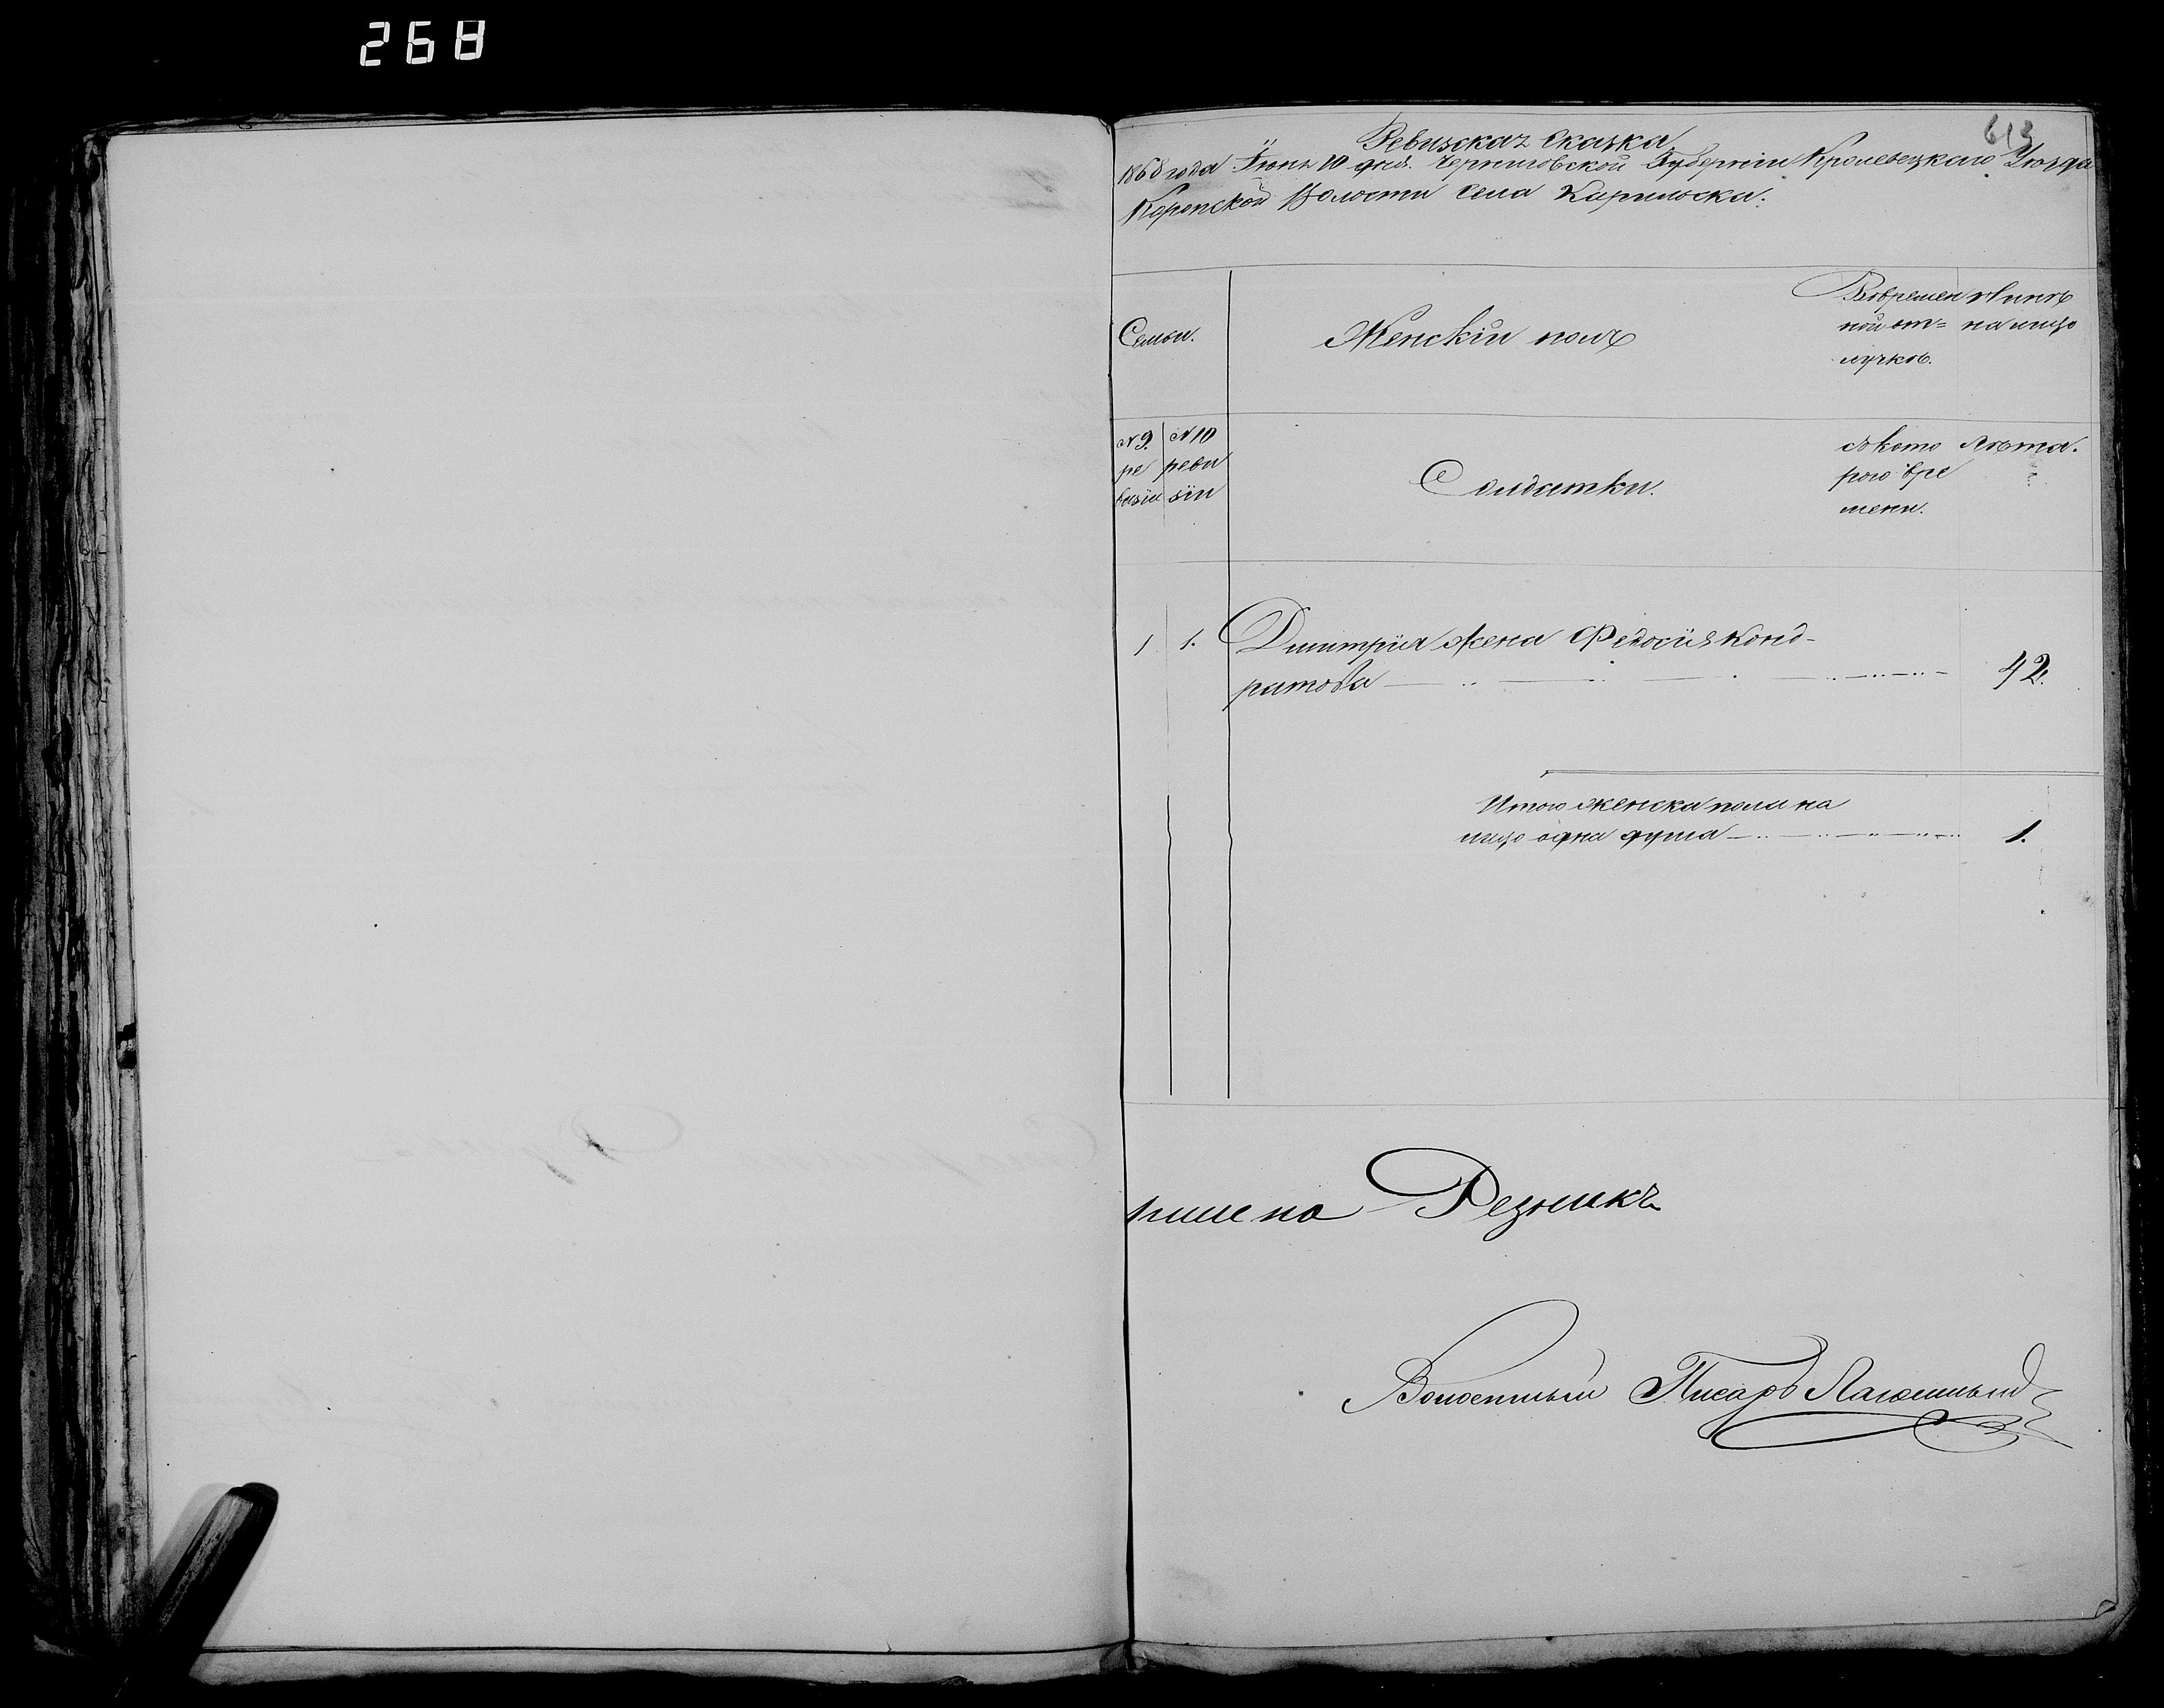 268
613
Ревизская Сказка
1868 года Іюня 10 дня. Черниговской Губерніи Кролевецкаго Уѣзда
Коропской Волости Села Карильска.
Семьи.
Женскій полъ
Вовремен
ной от=
лучкѣ.
Нынѣ
на лицо
№ 9.
ре
визіи
№ 10
реви
зіи
Солдатки.
съ кото
рого вре
мени.
Лѣта.
1 1. Дмитрія жена Федосія Конд-
ратова 42.
Итого женска пола на
лицо одна душа 1.
Резникъ
Волостный Писарь